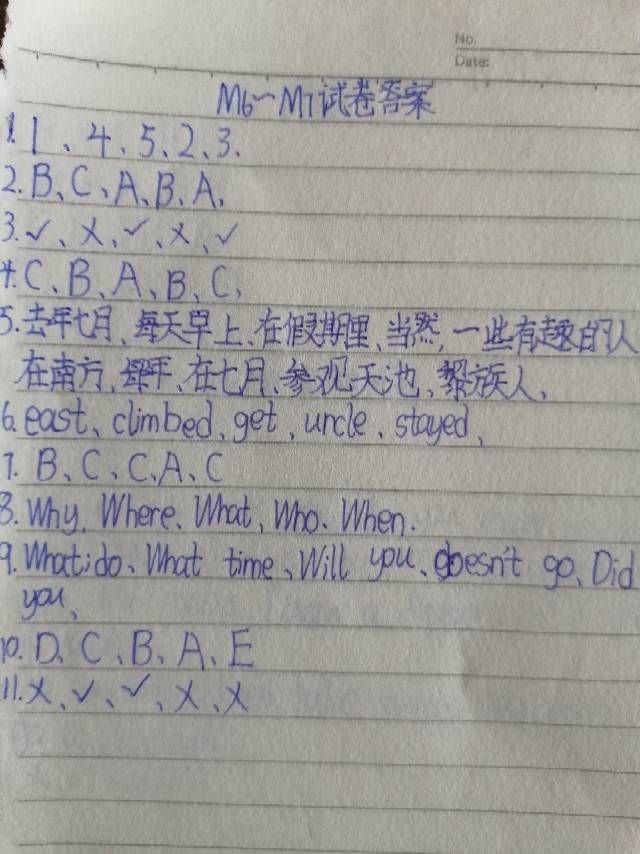 No.
Date:
M6～M7试卷答案
1. 1、4、5、2、3、
2. B、C、A、B、A、
3. ✓、X、✓、X、✓
4. C、B、A、B、C、
5. 去年七月、每天早上、在假期里、当然,一些有趣的人
在南方、每年、在七月、参观天池、黎族人、
6. east、climbed、get、uncle、stayed、
7. B、C、C、A、C
8. Why、Where、What、Who、When.
9. What;do、What time、Will you、doesn't go、Did
you、
10. D、C、B、A、E
11. X、✓、✓、X、X